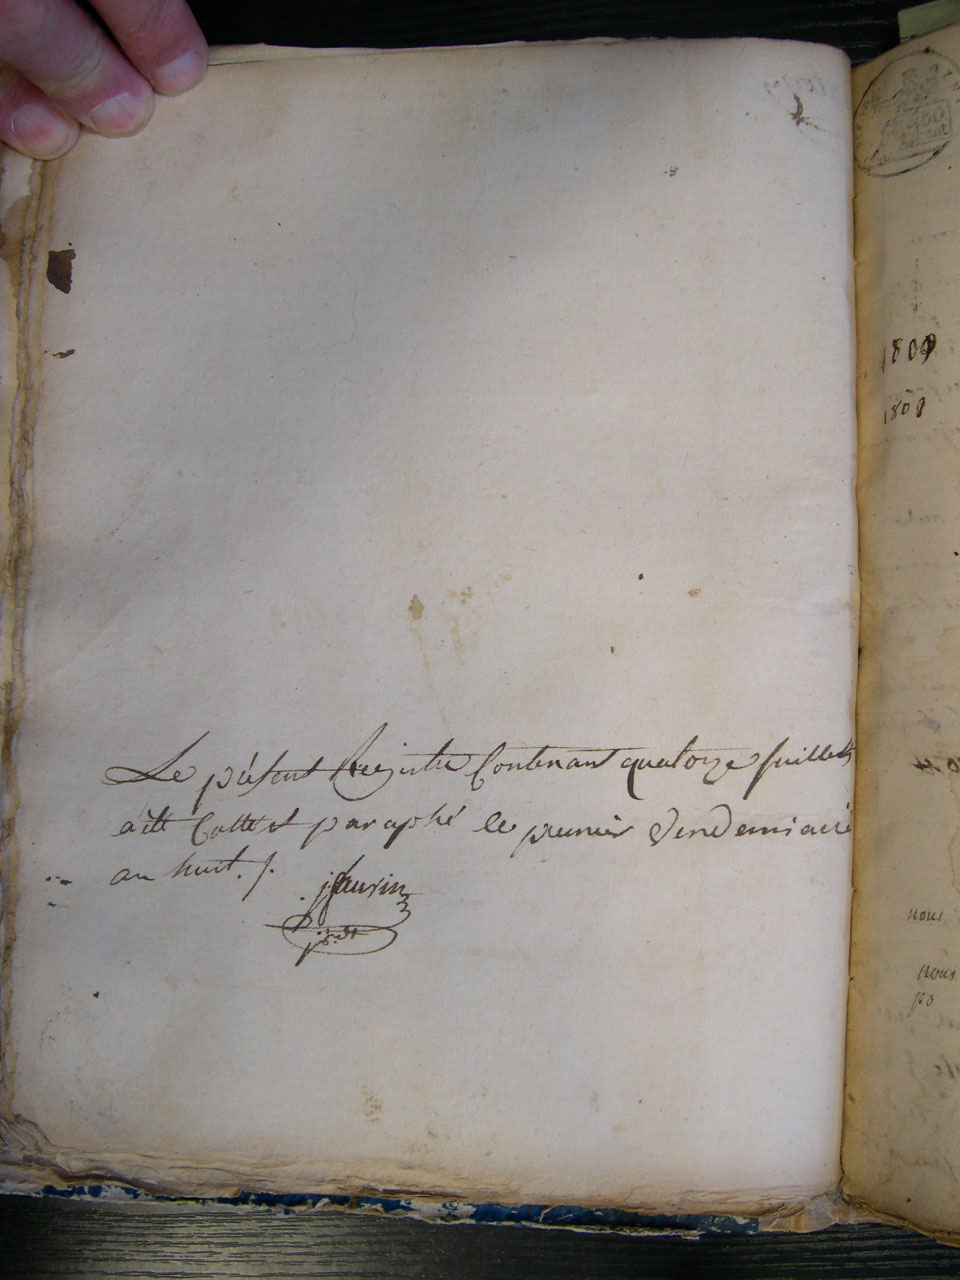 Le présent Registre Contenant quatorze feuillets
a été Cotté et paraphé le premier Vendemiaire
an huit ./.
jSaurin
prdt
50
1809
1808
nous
nous